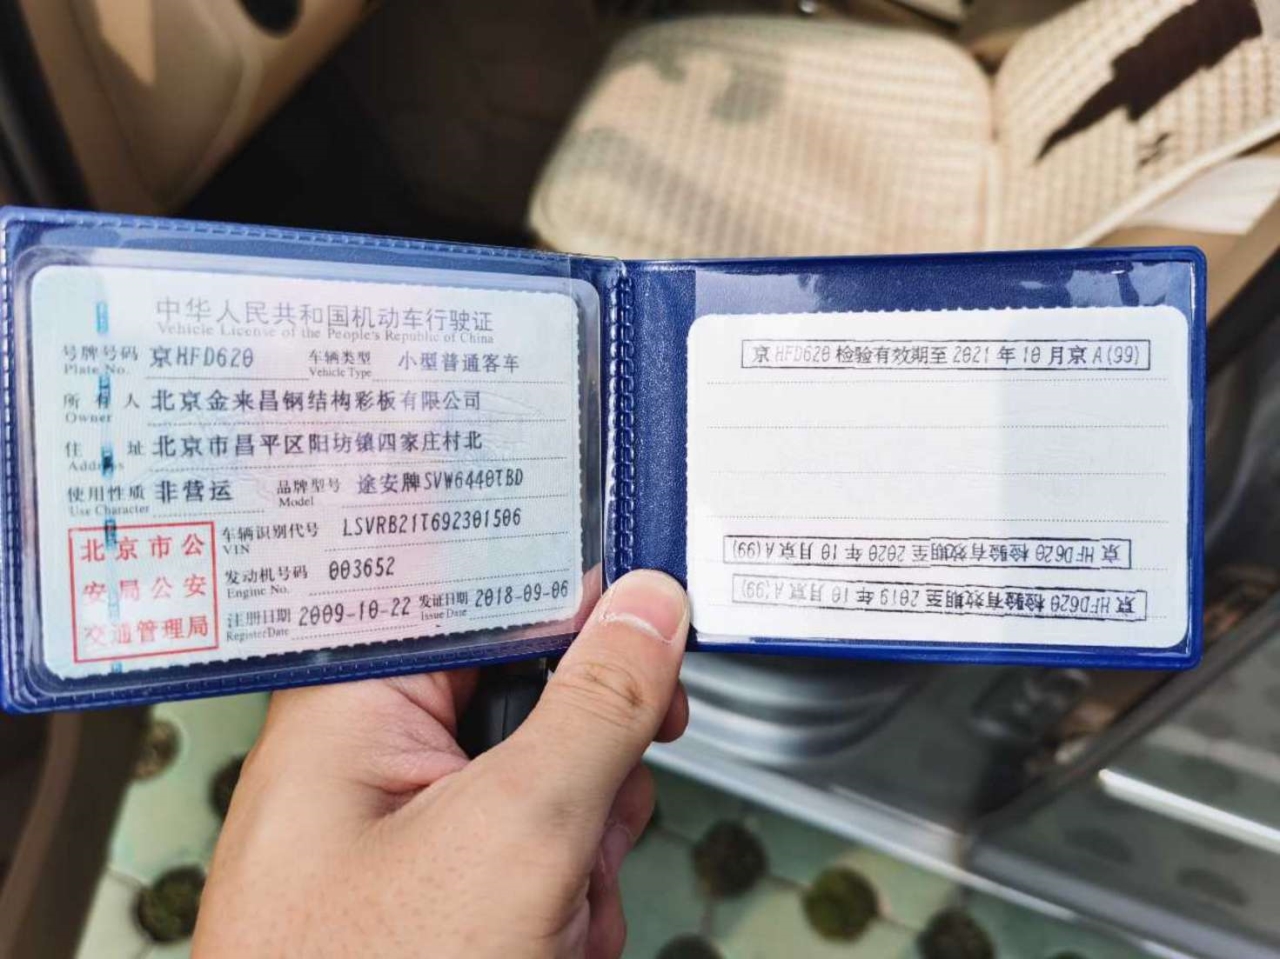 中华人民共和国机动车行驶证
Vehicle License of the People's Republic of China
号牌号码 京HFD620 车辆类型 小型普通客车
Plate No. Vehicle Type
所有人 北京金来昌钢结构彩板有限公司
Owner
住址 北京市昌平区阳坊镇四家庄村北
Address
使用性质 非营运 品牌型号 途安牌SVW6440TBD
Use Character Model
北京市公
安局公安
交通管理局
车辆识别代号 LSVRB21T692301506
VIN
发动机号码 003652
Engine No.
注册日期 2009-10-22 发证日期 2018-09-06
Register Date Issue Date
京HFD620检验有效期至2021年10月京A(99)
京HFD620检验有效期至2020年10月京A(99)
京HFD620检验有效期至2019年10月京A(99)